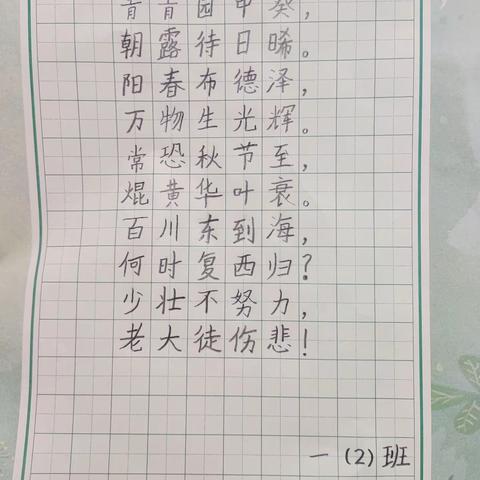 青青园中葵，
朝露待日晞。
阳春布德泽，
万物生光辉。
常恐秋节至，
焜黄华叶衰。
百川东到海，
何时复西归？
少壮不努力，
老大徒伤悲！
一（2）班